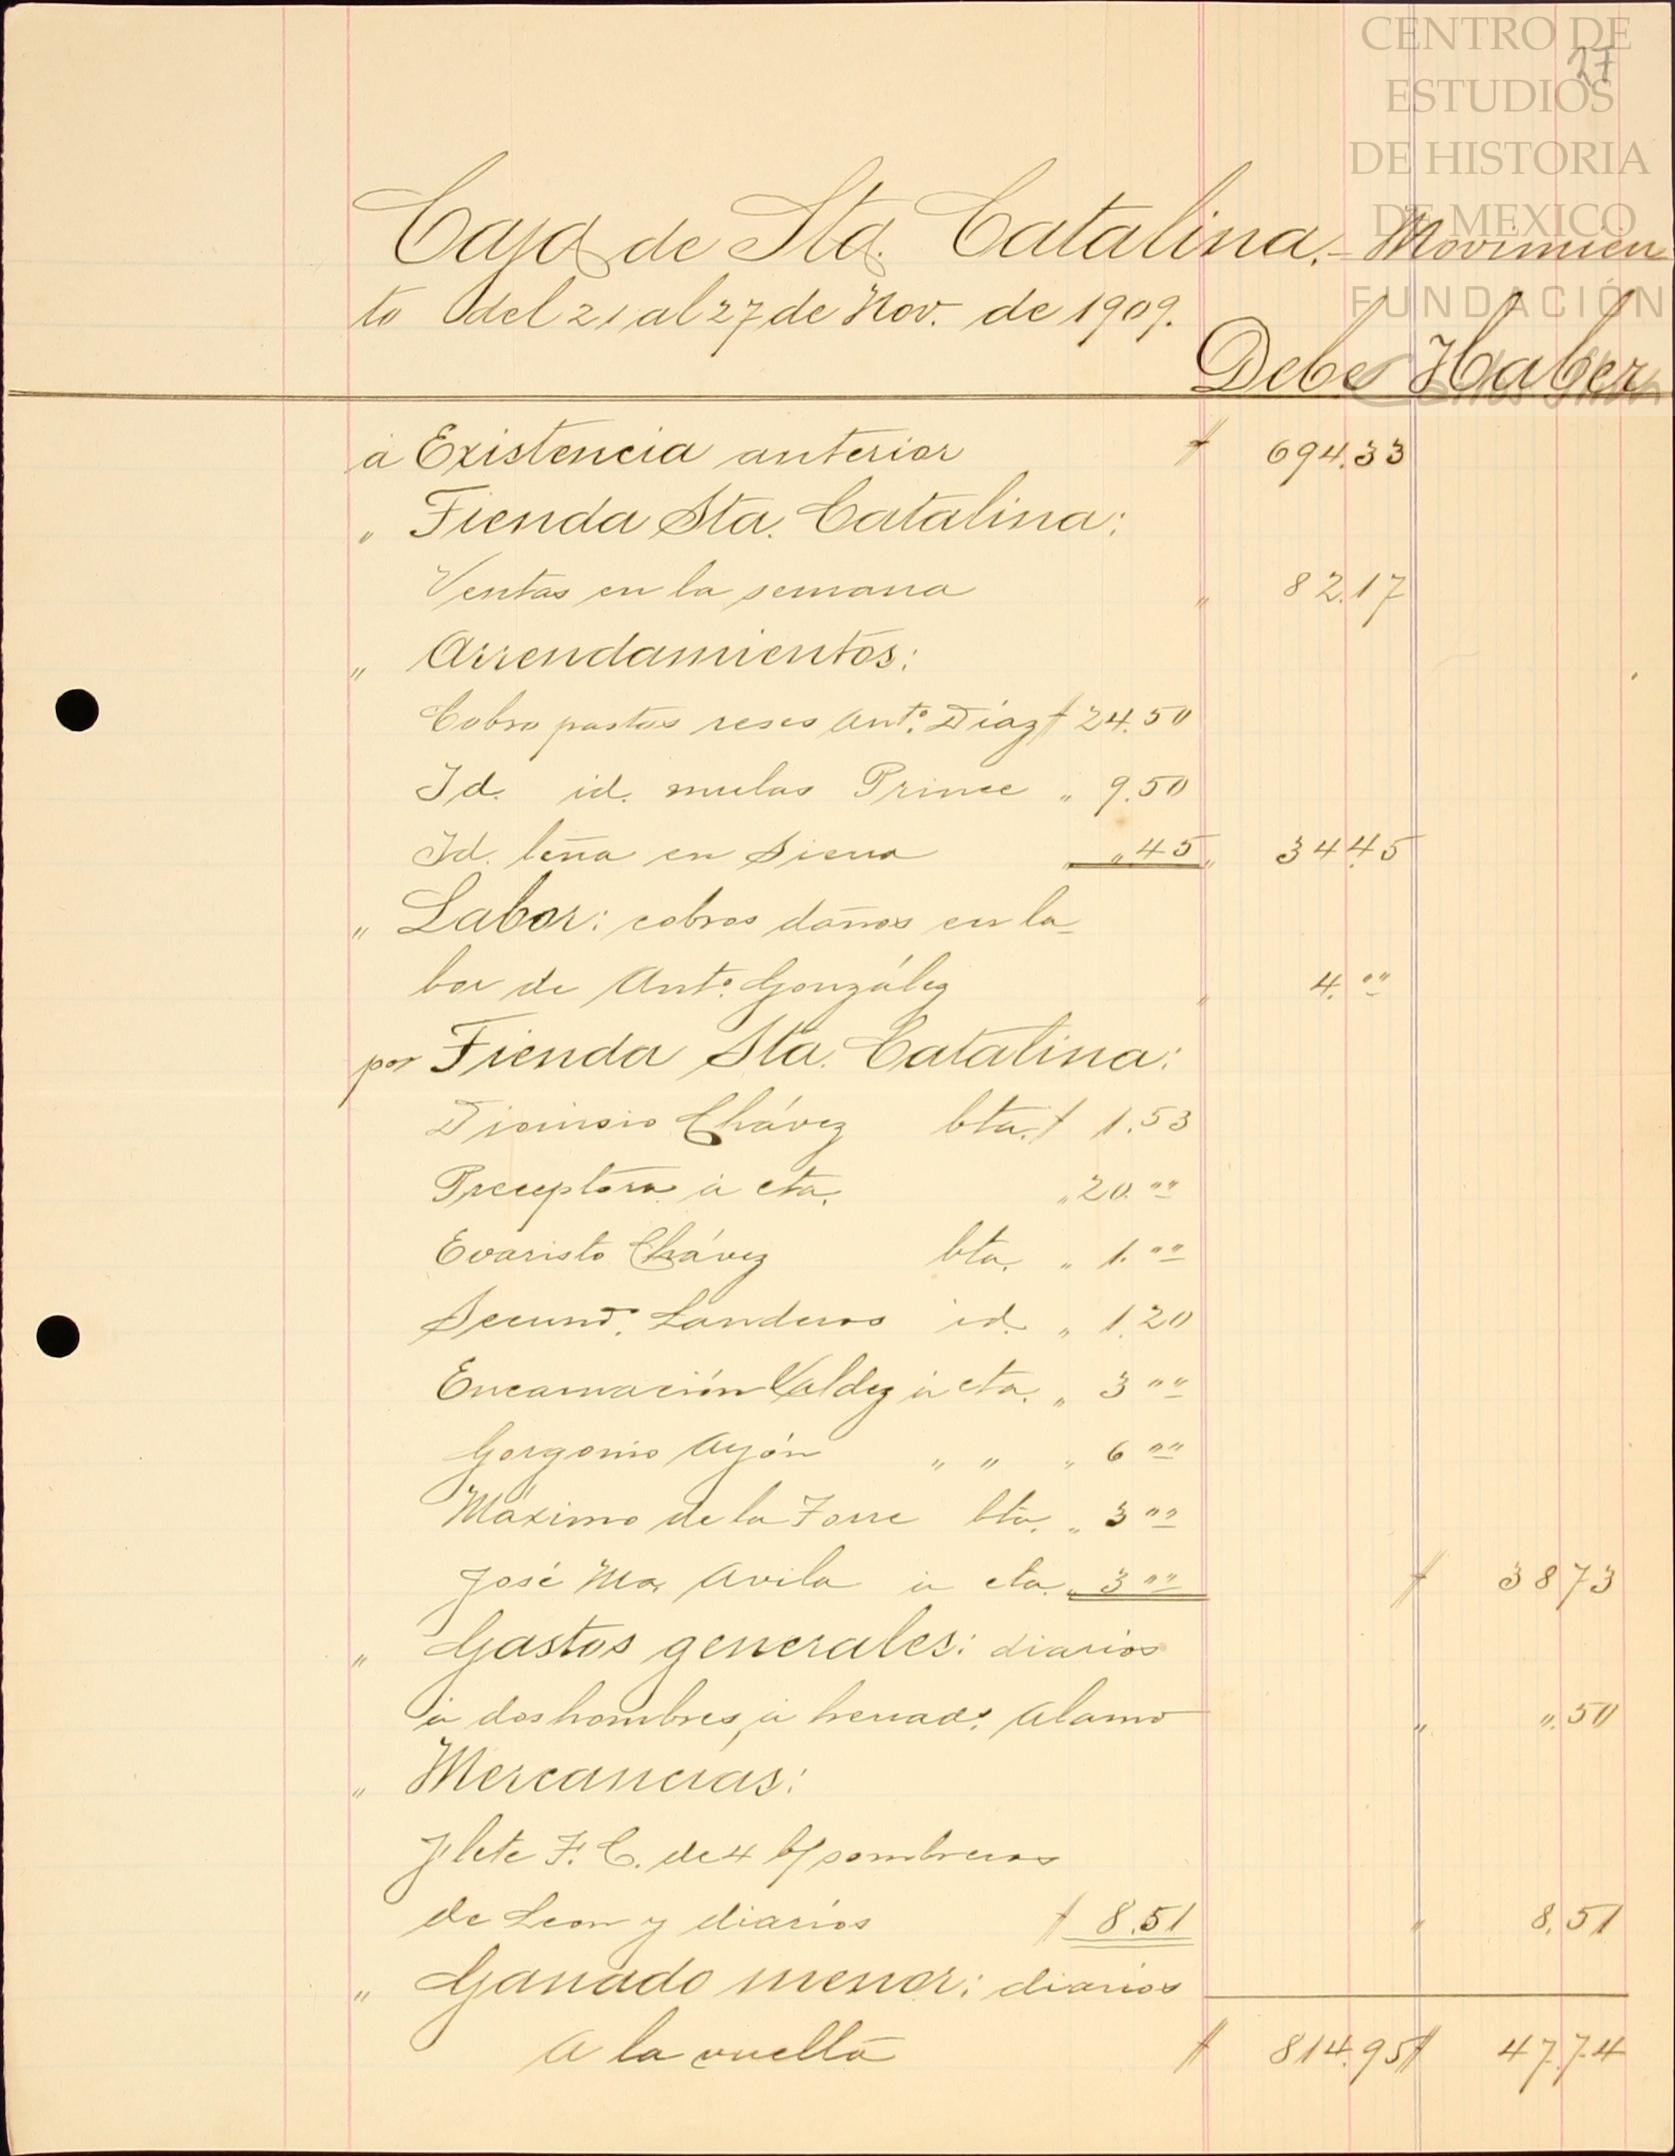 CENTRO DE
27
ESTUDIOS
DE HISTORIA
DE MEXICO
FUNDACIÓN
Caja de Sta. Catalina.- Movimien
to del 21 al 27 de Nov. de 1909.
Debe Haber
á Existencia anterior $ 694.33
" Tienda Sta. Catalina:
Ventas en la semana " 82.17
" Arrendamientos:
Cobro pastos reses Anto. Díaz $ 24.50
Id. id. mulas Prince " 9.50
Id. leña en Sierra " ".45 " 34.45
" Labor: cobros daños en la-
bor de Anto. González " 4.""
por Tienda Sta. Catalina:
Dionisio Chávez bta. $ 1.53
Preceptora á cta. " 20.""
Evaristo Chávez bta. " 1.""
Secundo. Landeros id. " 1.20
Encarnación Valdez á cta. " 3""
Gorgonio Ayón " " " 6""
Máximo de la Torre bta. " 3""
José Ma. Avila á cta. " 3"" $ 38 73
" Gastos generales: diarios
á dos hombres, á herrads. Alamo " ".50
" Mercancias:
Flete F. C. de 4 b/ sombreros
de Leon y diarios $ 8.51 " 8.51
" Ganado menor: diarios
A la vuelta $ 814.95 $ 47.74